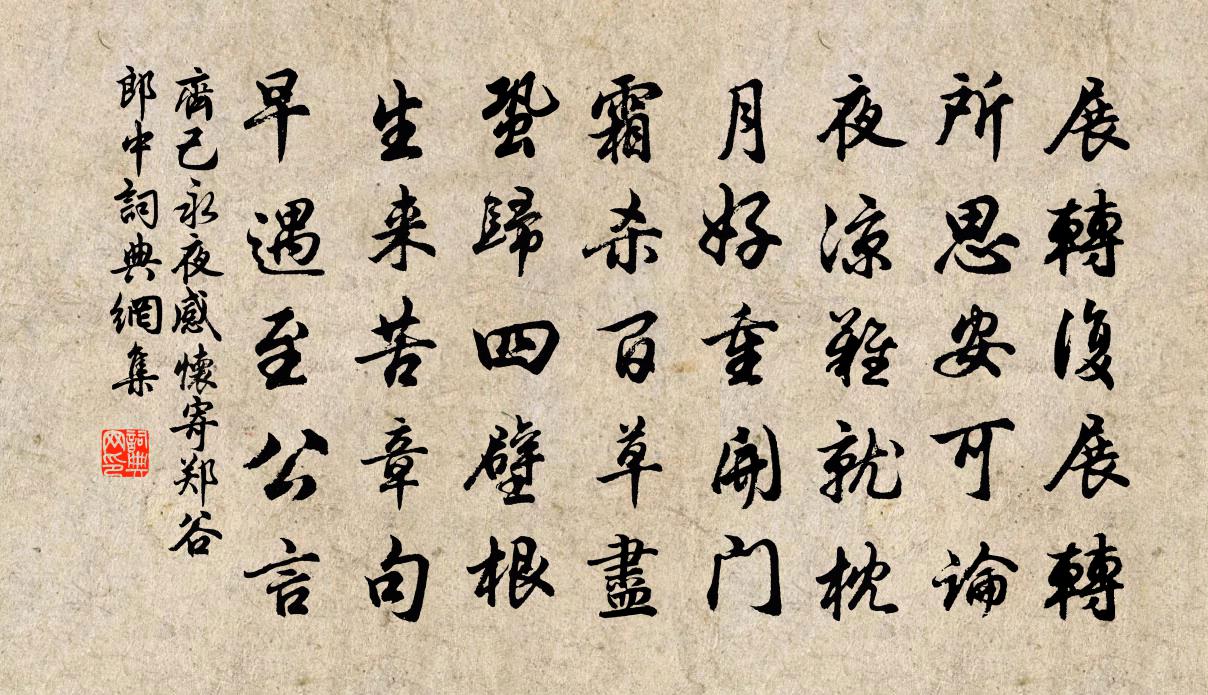 展轉復展轉
所思安可論
夜涼難就枕
月好重開门
霜杀百草盡
蛩歸四壁根
生来苦章句
早遇至公言
齊己永夜感懷寄郑谷
郎中詞典網集
詞典网印